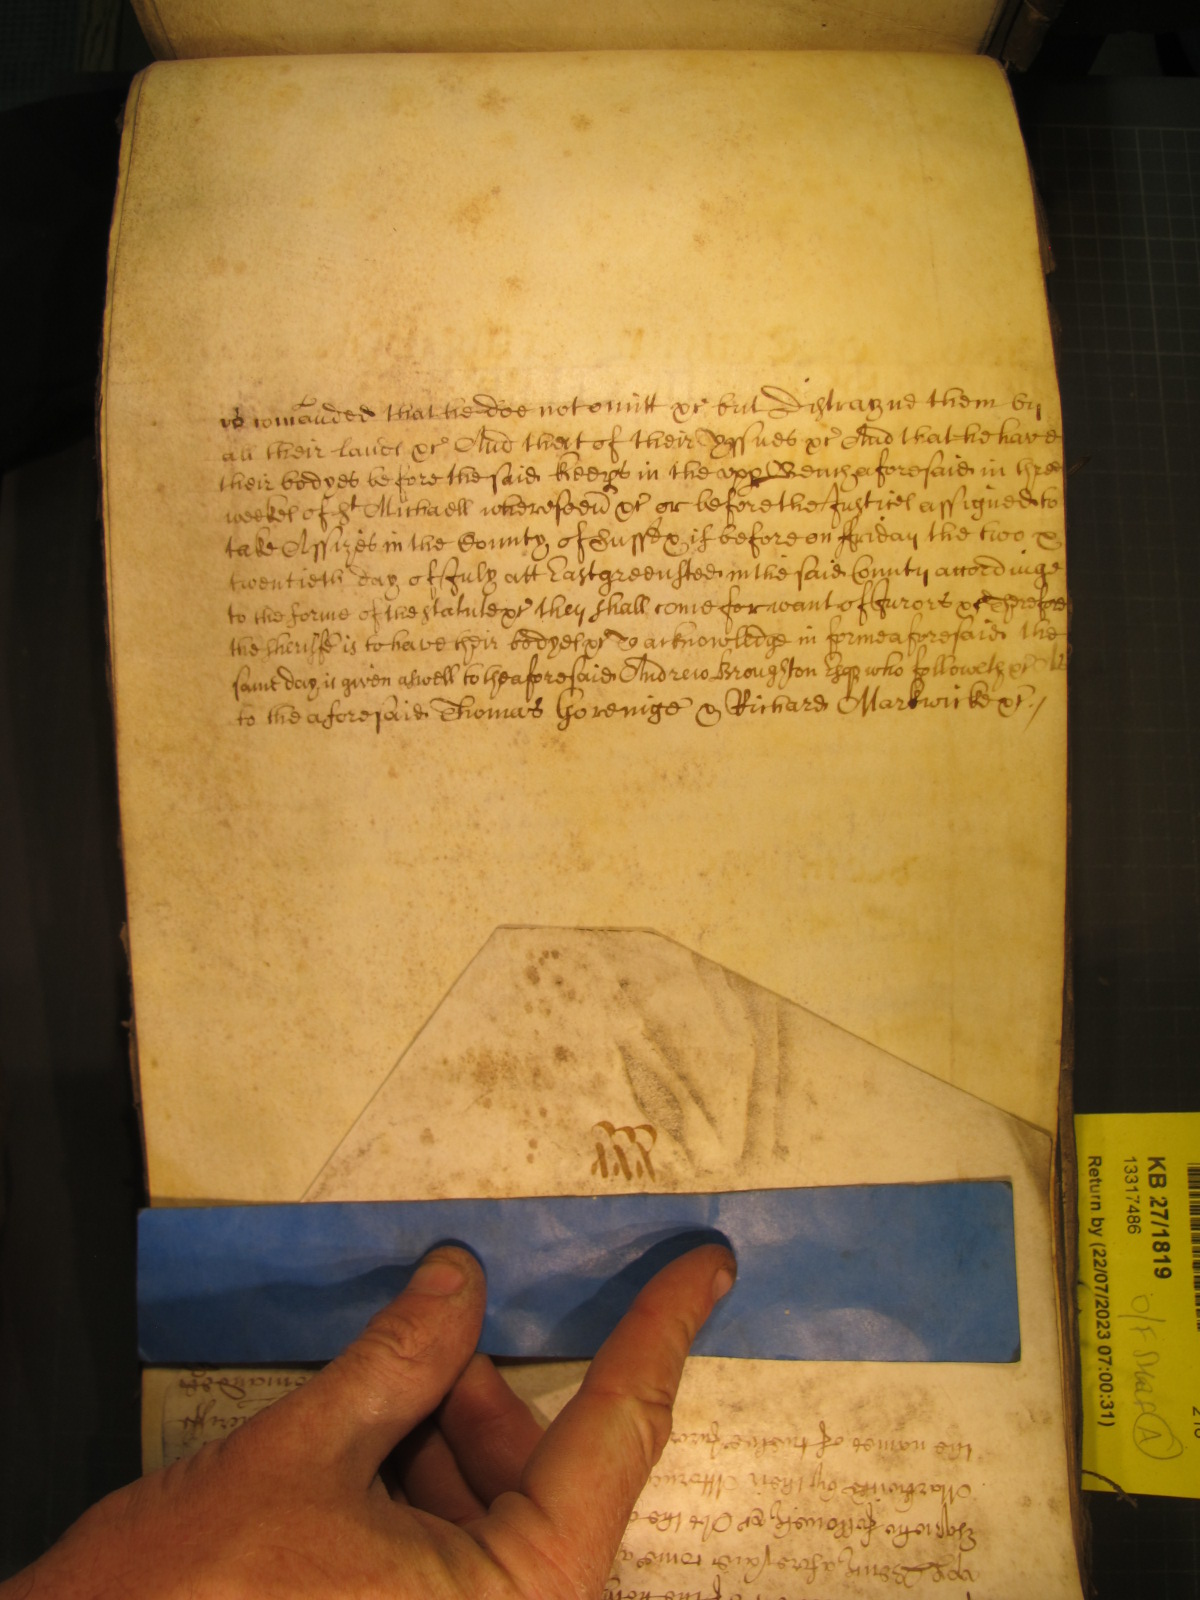 is comanded that he doe not omitt &c but Distrayne them by
all their lands &c And that of their yssues &c And that he have
their bodyes before the said keepers in the upp Bench aforesaid in three
weekes of St Michaell wheresoeu &c or before the Justices assigned to
take Assizes in the County of Sussex if before on ffriday the two &
twentieth day of July att Eastgreensted in the said County accordinge
to the forme of the statute &c they shall come for want of Jurors &c Therefore
the sheriffe is to have their bodyes &c to acknowledge in forme aforesaid The
same day is given aswell to the aforesaid Andrew Broughton Esq who followeth &c As
to the aforesaid Thomas Goreinge & Richard Markwicke &c
KB 27/1819
13317486
Return by (22/07/2023 07:00:31)
O/F Shelf A
the names of twelve Jurors
Markwicke by their Attorney
Esq who followeth &c As the
upp Bench aforesaid came